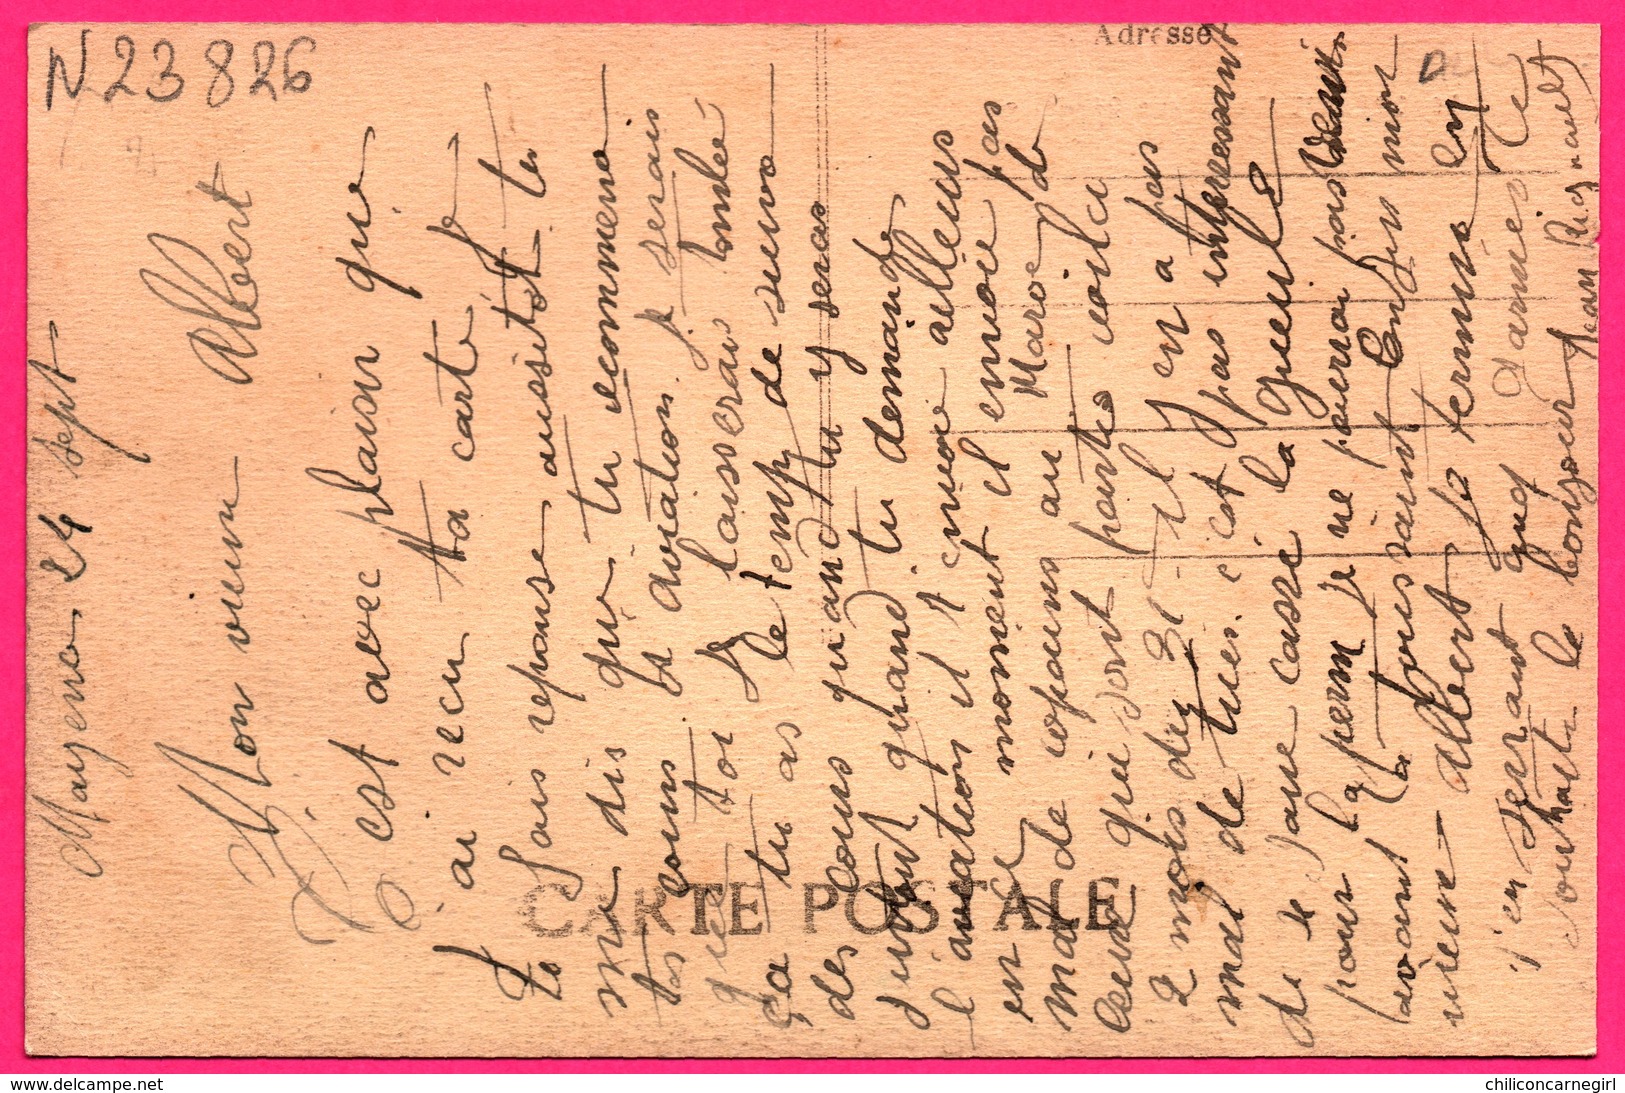 N 23826
Adresse
CARTE POSTALE
Mayenne 24 Sept
Mon vieux Albert
C'est avec plaisir que
j'ai recu ta carte je
te fais reponse aussitot tu
me dis que tu recommence
tes cours d'aviation je serais
que toi je laisserais tomber
ça tu as le temps de suivre
des cours quand tu y seras
surtout quand tu demande
l'aviation il t envoie ailleurs
en ce moment il envoie pas
mal de copains au Maroc de
ceux qui sont partis voila
2 mois du 31 - il y en a pas
mal de tués. c'est pas interessant
de se faire casser la gueule
pour la perm je ne pourrai pas venir
avant la fous savant
vieux Albert je termine en
j'en serrant cinq Garnier te
souhaite le bonjour Jean Rignault
chiliconcarnegirl - delcampe.net